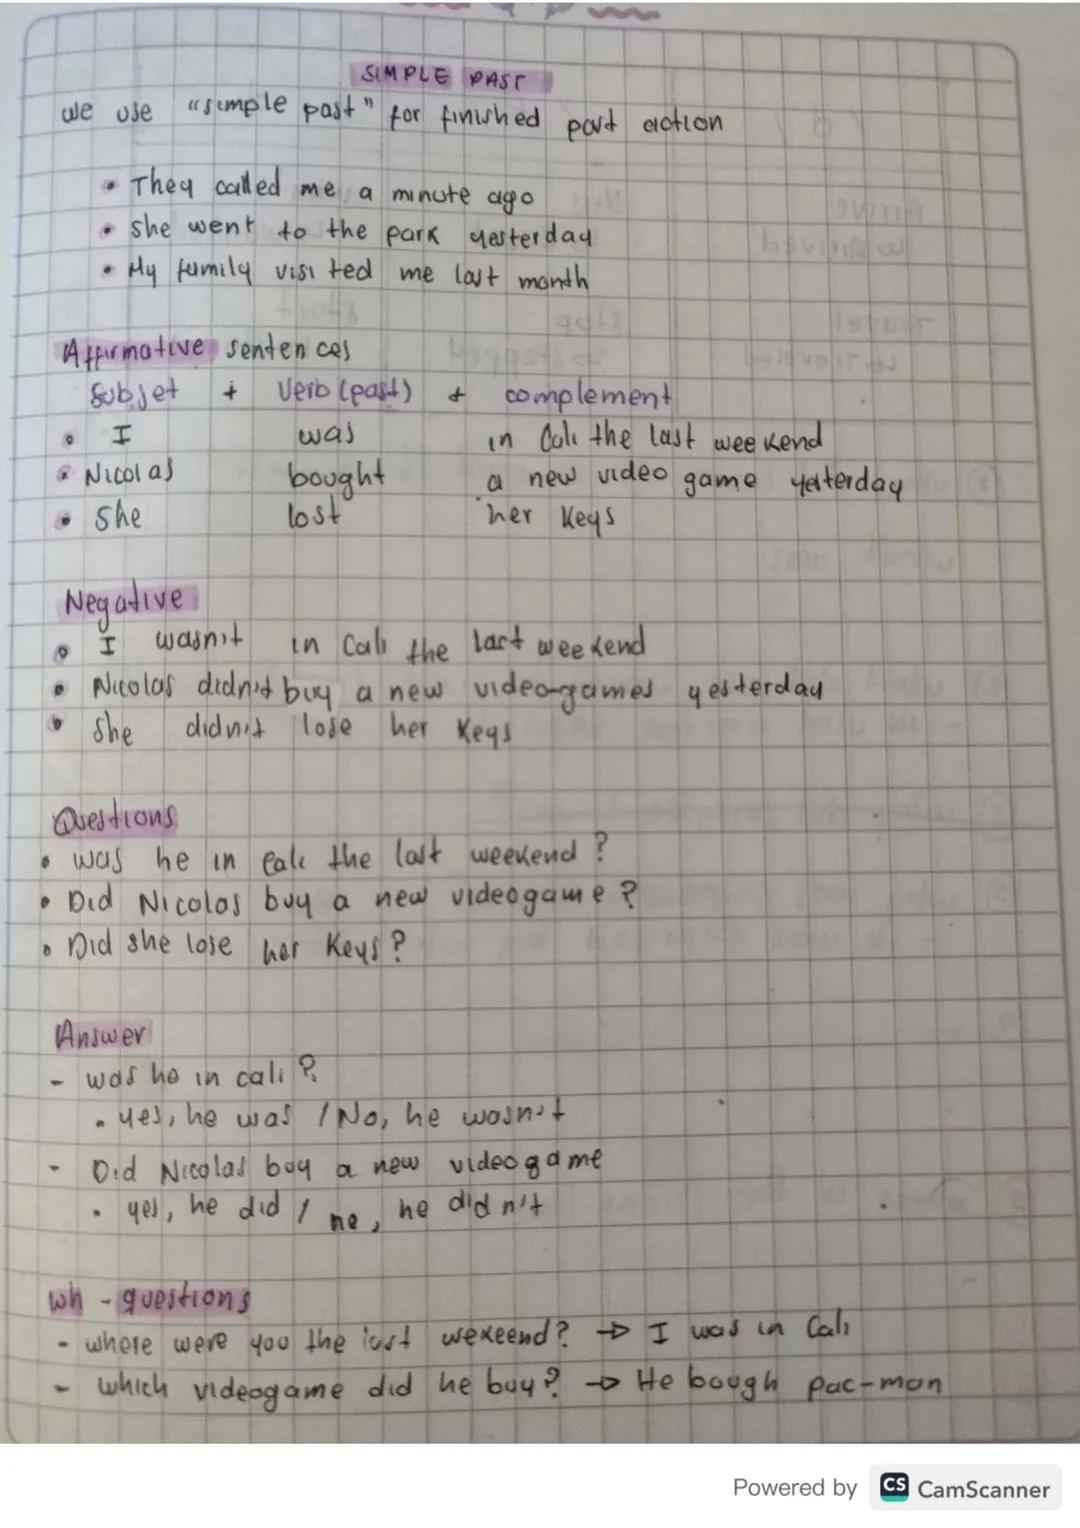 SIMPLE PAST
we use "simple past" for finished past action
• They called me a minute ago
• She went to the park yesterday
• My family visited me last month
Affirmative sentences
Subjet + Verb (past) + complement
• I was in Cali the last weekend
• Nicolas bought a new video game yesterday
• She lost her keys
Negative
• I wasn't in Cali the last weekend
• Nicolas didn't buy a new video-games yesterday
• She didn't lose her keys
Questions
• was he in Cali the last weekend?
• Did Nicolas buy a new videogame?
• Did she lose her keys?
Answer
- was he in cali?
• yes, he was / No, he wasn't
- Did Nicolas buy a new videogame
• yes, he did / no, he didn't
wh - questions
- where were you the last wekeend? → I was in Cali
- which videogame did he buy? → He bough pac-man
Powered by CS CamScanner